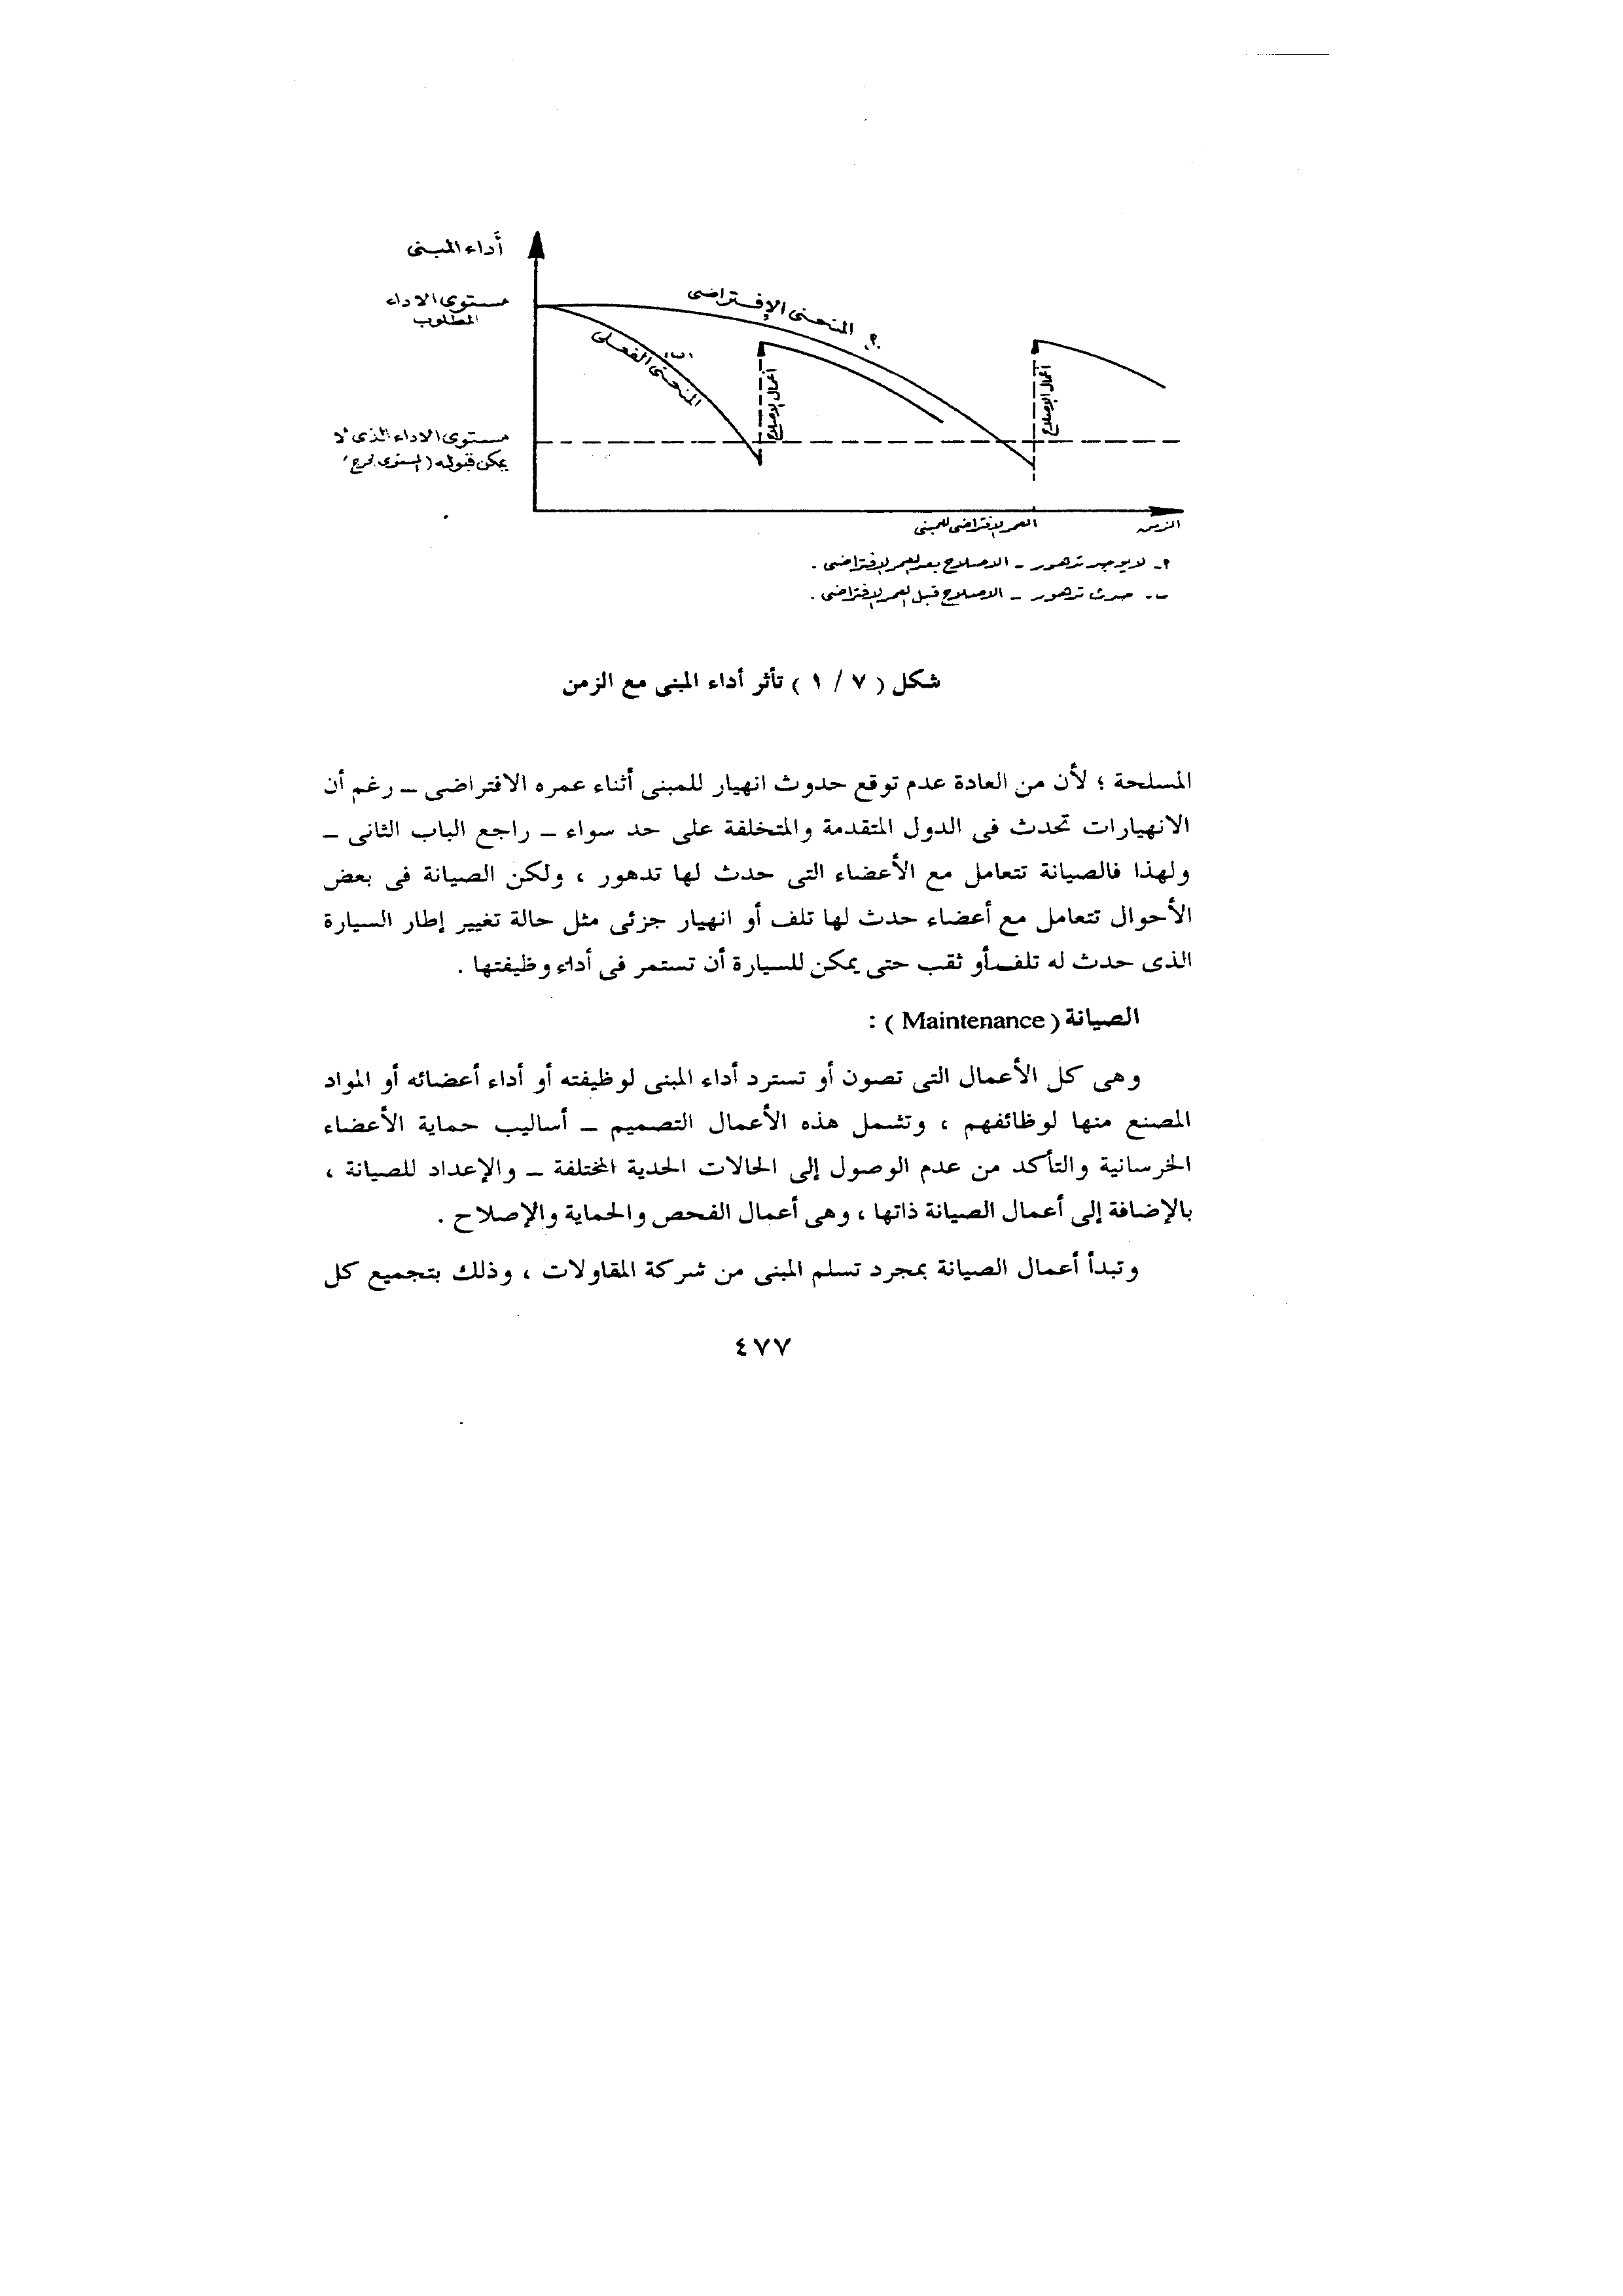 أداء المبنى
مستوى الاداء
المطلوب
المنحنى الإفتراضى
أ
المنحنى الفعلى
(ب)
أعمال الإصلاح
أعمال الإصلاح
مستوى الاداء الذى لا
يمكن قبوله (المستوى الحرج)
العمر الإفتراضى للمبنى
الزمن
أ - لا يوجد تدهور - الاصلاح بعد العمر الإفتراضى .
ب - حدث تدهور - الاصلاح قبل العمر الإفتراضى .
شكل ( ٧ / ١ ) تأثر أداء المبنى مع الزمن
المسلحة ؛ لأن من العادة عدم توقع حدوث انهيار للمبنى أثناء عمره الافتراضى ــ رغم أن
الانهيارات تحدث فى الدول المتقدمة والمتخلفة على حد سواء ــ راجع الباب الثانى ــ
ولهذا فالصيانة تتعامل مع الأعضاء التى حدث لها تدهور ، ولكن الصيانة فى بعض
الأحوال تتعامل مع أعضاء حدث لها تلف أو انهيار جزئى مثل حالة تغيير إطار السيارة
الذى حدث له تلف أو ثقب حتى يمكن للسيارة أن تستمر فى أداء وظيفتها .
الصيانة ( Maintenance ) :
وهى كل الأعمال التى تصون أو تسترد أداء المبنى لوظيفته أو أداء أعضائه أو المواد
المصنع منها لوظائفهم ، وتشمل هذه الأعمال التصميم ــ أساليب حماية الأعضاء
الخرسانية والتأكد من عدم الوصول إلى الحالات الحدية المختلفة ــ والإعداد للصيانة ،
بالإضافة إلى أعمال الصيانة ذاتها ، وهى أعمال الفحص والحماية والإصلاح .
وتبدأ أعمال الصيانة بمجرد تسلم المبنى من شركة المقاولات ، وذلك بتجميع كل
٤٧٧